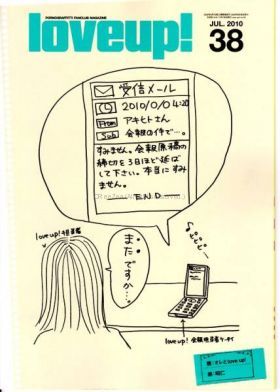 PORNOGRAFFITTI FANCLUB MAGAZINE
loveup!
JUL. 2010
38
受信メール
2010/0/0 4:20
From アキヒトさん
Sub 会報の件で…。
すみません。会報原稿の
締切を3日ほど延ば
して下さい。本当にすみ
ません。
END
loveup!担当者
またですか…。
loveup! 会報担当者ケータイ
題：オレとlove up!
画：昭仁